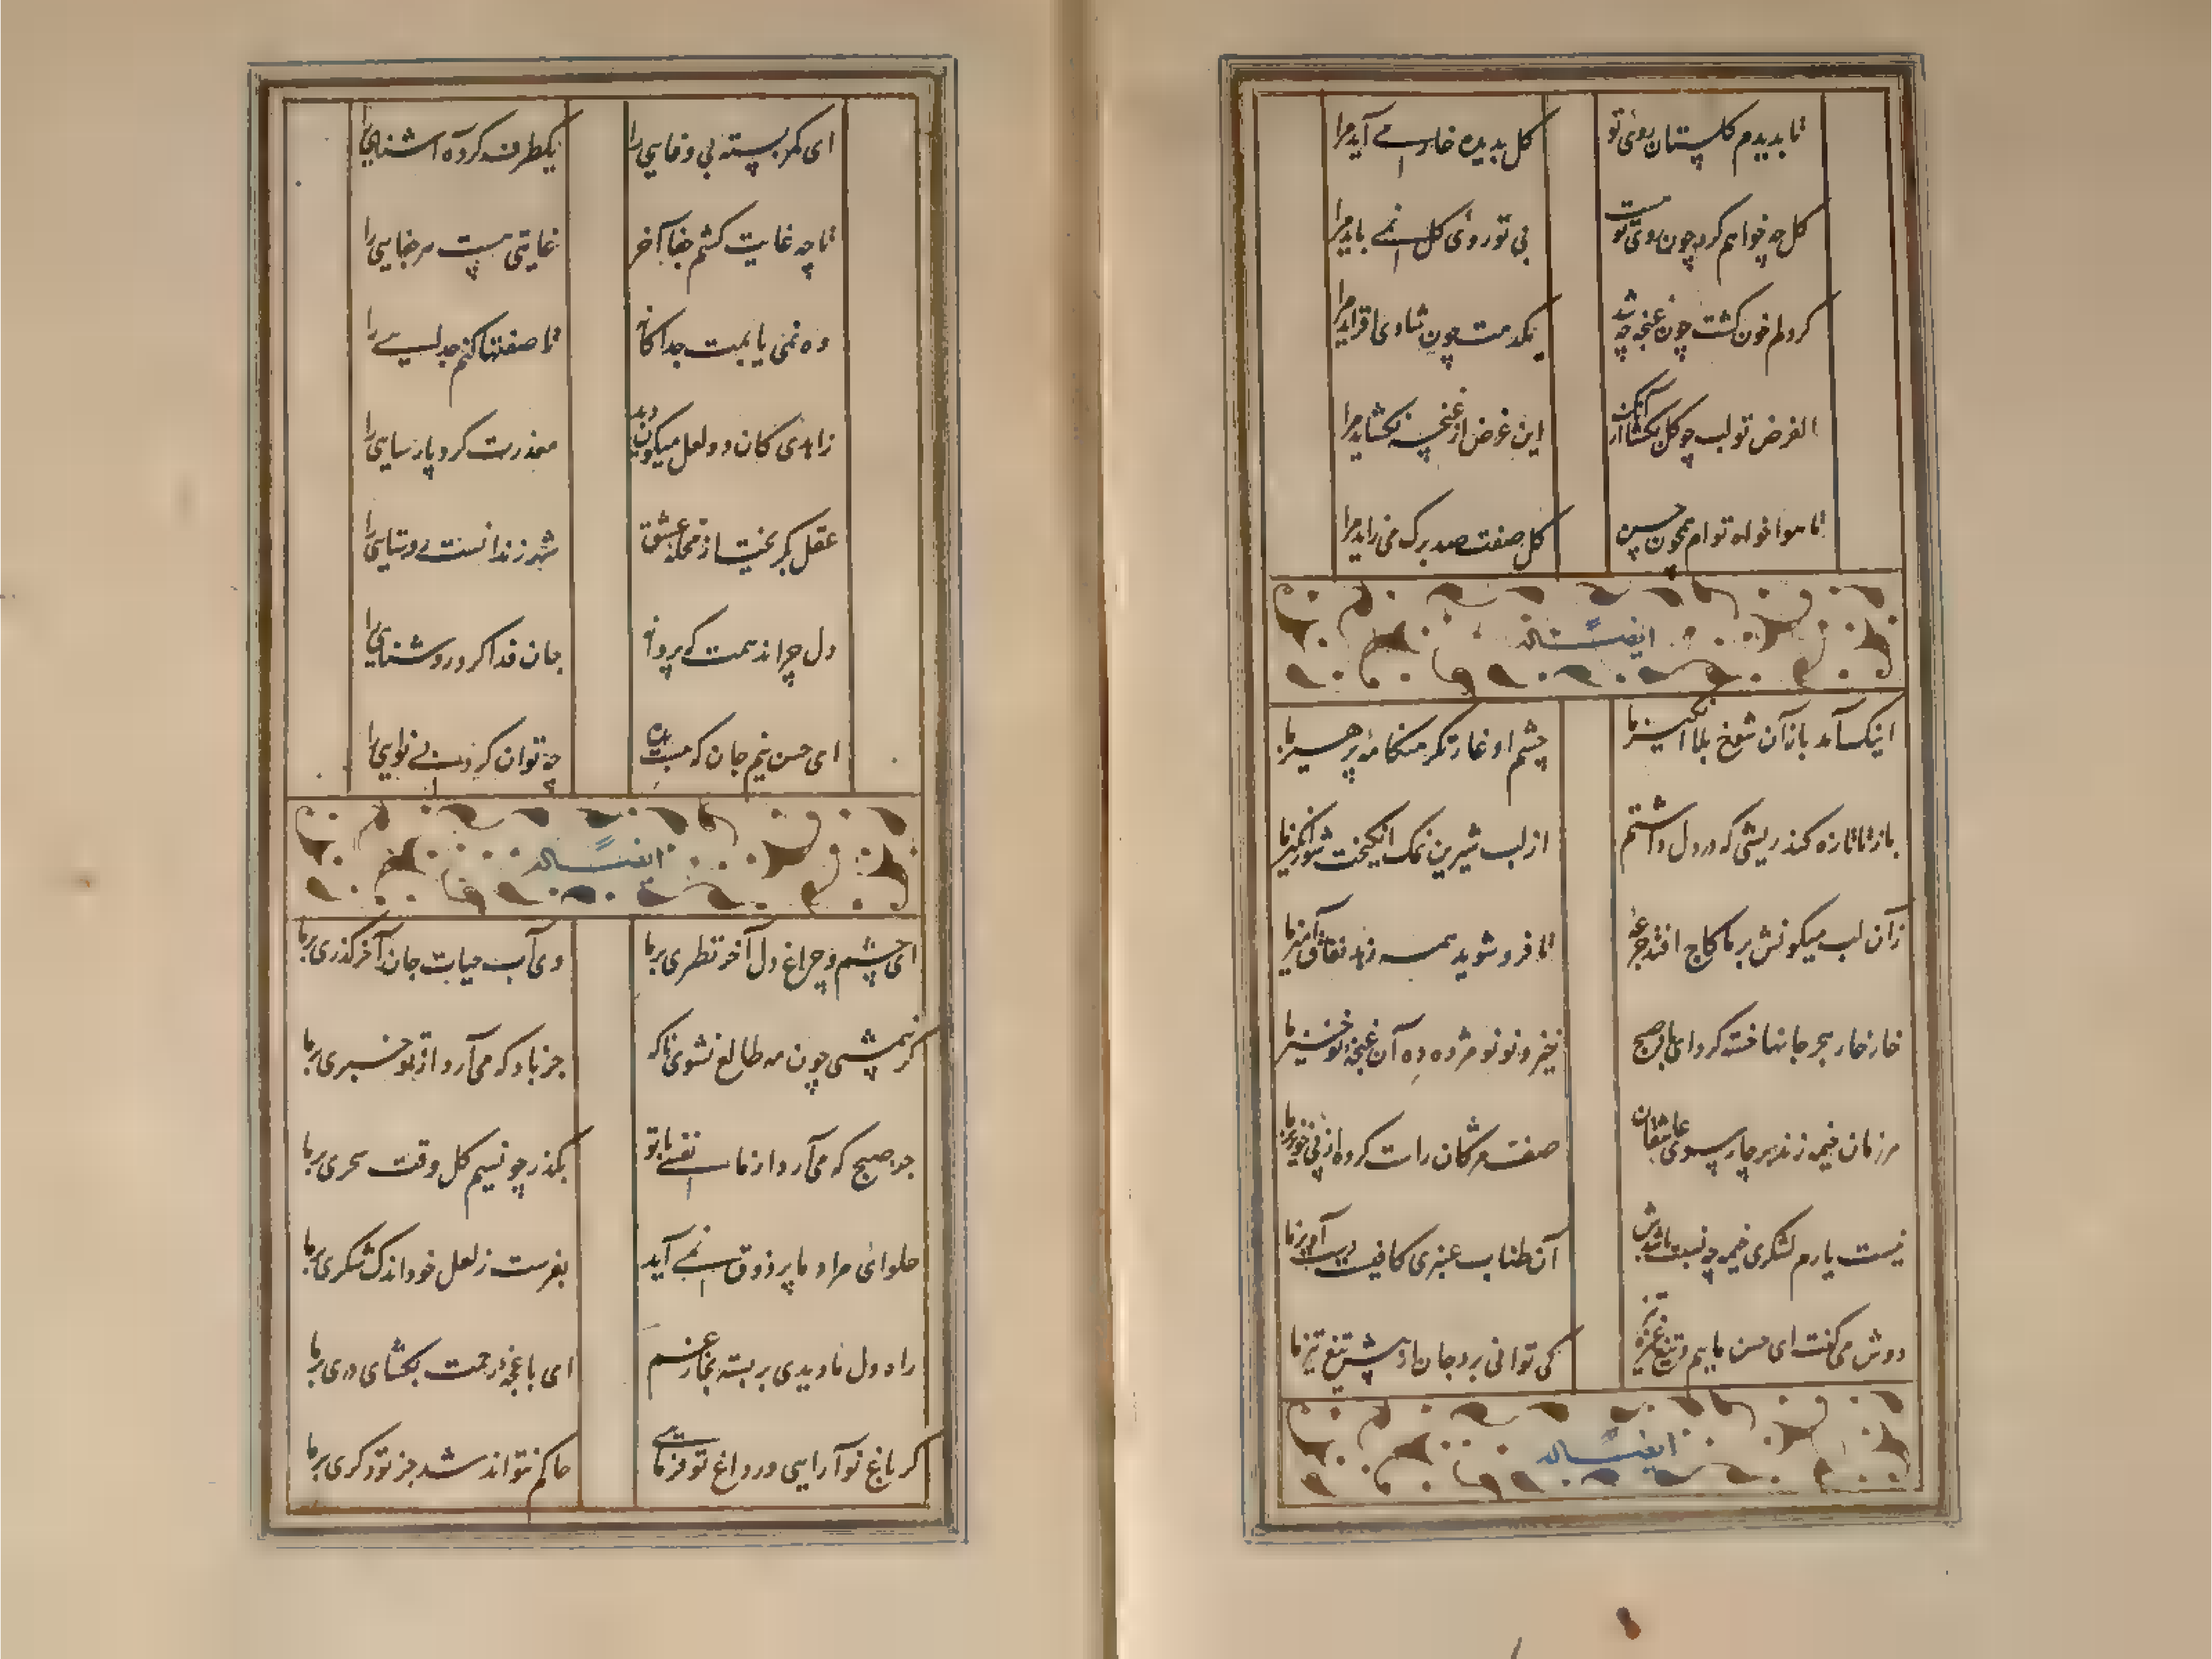 تا بدیدم گلستان روی تو گل بدیده خار می آید مرا
گل چه خواهم کرد چون روی تو هست بی تو روی گل نمی باید مرا
گر دلم خون گشت چون غنچه چه شد یکدمت چون شادی افزاید مرا
الغرض تو لب چو گل بگشا از آنک این غرض از غنچه نگشاید مرا
تا هوا خواه توام همچون حسن گل صفت صد برگ می زاید مرا
ایضاً له
اینک آمد باز آن شوخ بلا انگیز ما چشم او غارتگر هنگامه پرهیز ما
باز تا تازه کند ریشی که در دل داشتم از لب شیرین نمک انگیخت شورانگیز ما
زان لب میگونش بر ما کاج افتد جرعه تا فرو شوید همه زهد نفاق آمیز ما
خار خار هجر جانها خسته کرد ای باد صبح خیز و نو نو مژده ده آن غنچه نوخیز ما
هر زمان خیمه زند بر چار سوی عاشقان صف مژگان راست کرده از پی خونریز ما
نیست یارم لشکری خیمه چه نسبت باشدش آن طناب عنبری کافیست دست آویز ما
دوش می گفت ای حسن ماییم و تیغ غمزه تیز کی توانی برد جان از پیش تیغ تیز ما
ایضاً له
ای کمر بسته بی وفایی را یکطرف کرده آشنایی را
تا چه غایت کشم جفا آخر غایتی هست هر جفایی را
وه نمی یابمت جداگانه تا صفتها کنم جدایی را
زاهدی کان دو لعل میگون دید معذرت کرد پارسایی را
عقل بگریخت از محله عشق شهر زندانست روستایی را
دل چراند همت که پروانه جان فدا کرد روشنایی را
ای حسن نیم جان که هست بده چه توان کرد بی نوایی را
ایضاً له
ای چشم و چراغ دل آخر نظری بر ما وی آب حیات جان آخر گذری بر ما
گر نیم شبی چون مه طالع نشوی ناگه جز باد که می آرد از تو خبری بر ما
جز صبح که می آرد از ما نفسی با تو بگذر چو نسیم گل وقت سحری بر ما
حلوای مراد ما پر ذوق نمی آید بفرست ز لعل خود اندک شکری بر ما
راه دل ما دیدی بر بسته بخار غم ای باغچه رحمت بگشای دری بر ما
گر باغ تو آرایی ور داغ تو فرمایی حاکم نتواند شد جز تو دگری بر ما